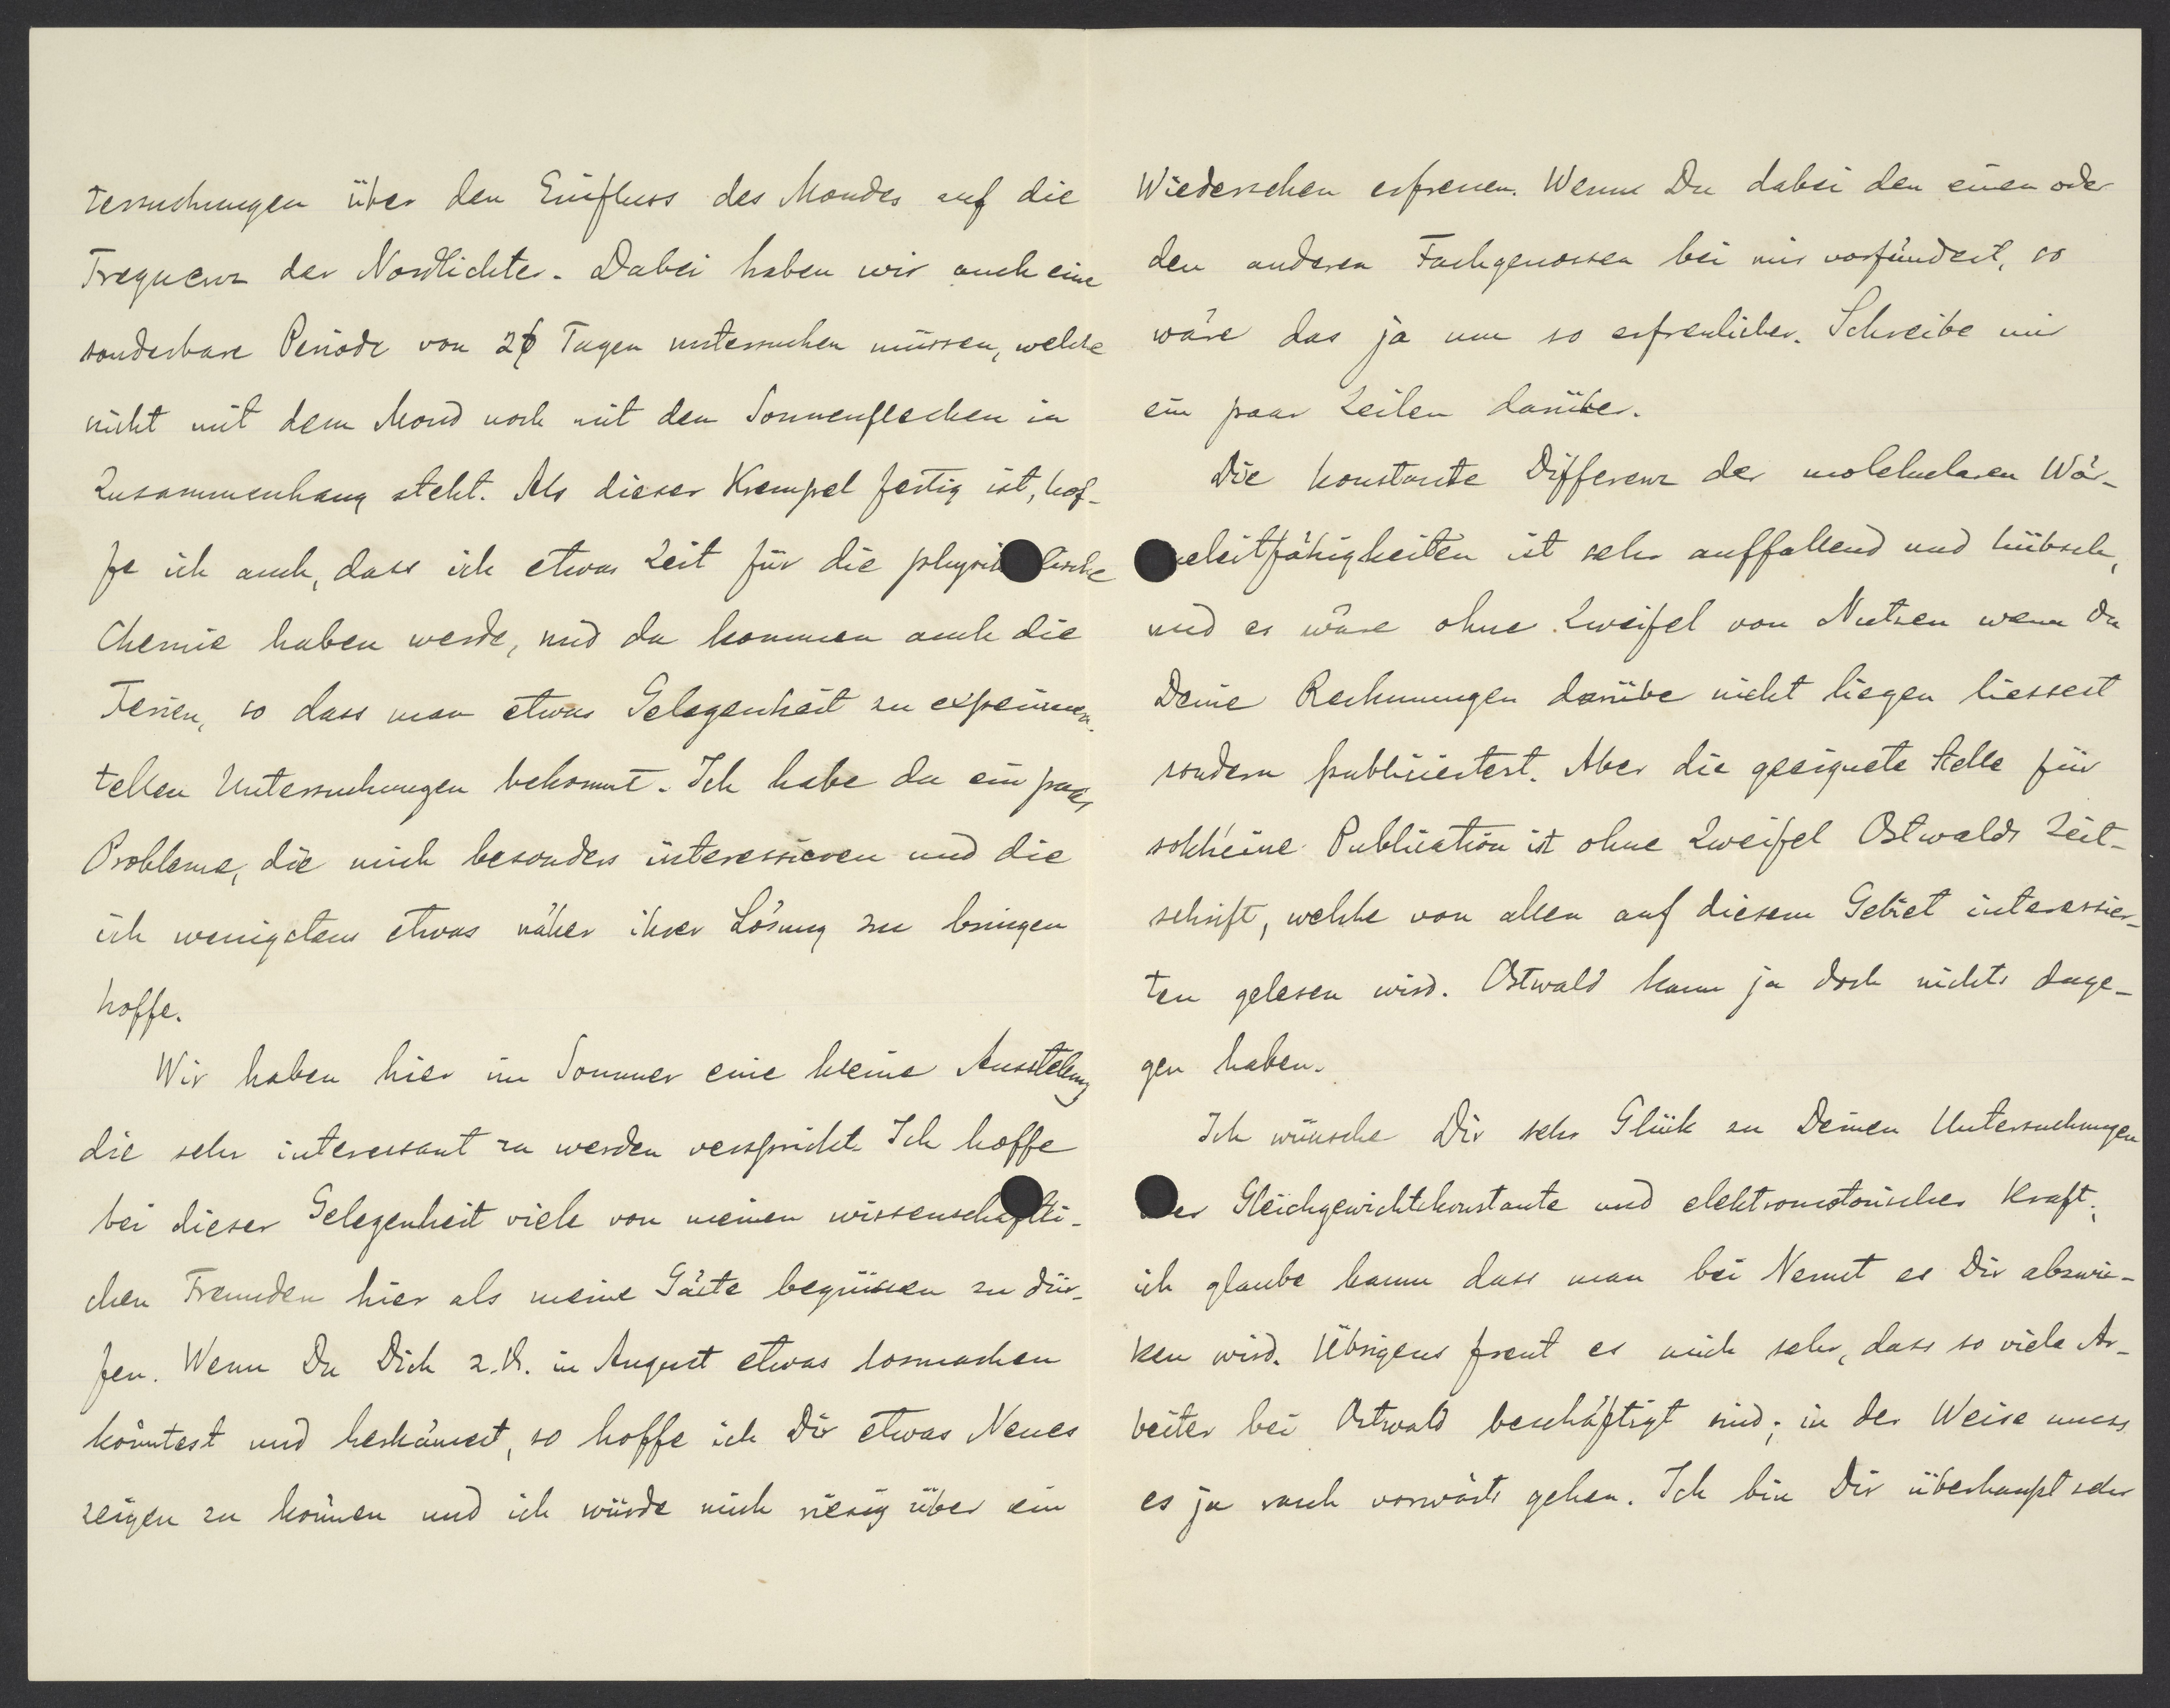 tersuchungen über den Einfluss des Mondes auf die
Frequenz der Nordlichter. Dabei haben wir auch eine
sonderbare Periode von 26 Tagen untersuchen müssen, welche
nicht mit dem Mond noch mit den Sonnenflecken in
Zusammenhang steht. Als dieser Krempel fertig ist, hof-
fe ich auch, dass ich etwas Zeit für die physikalische
Chemie haben werde, und da kommen auch die
Ferien, so dass man etwas Gelegenheit zu experimen-
tellen Untersuchungen bekommt. Ich habe da ein paar
Probleme, die mich besonders interessieren und die
ich wenigstens etwas näher ihrer Lösung zu bringen
hoffe.
Wir haben hier im Sommer eine kleine Ausstellung
die sehr interessant zu werden verspricht. Ich hoffe
bei dieser Gelegenheit viele von meinen wissenschaftli-
chen Freunden hier als meine Gäste begrüssen zu dür-
fen. Wenn Du Dich z.B. in August etwas losmachen
könntest und herkämest, so hoffe ich Dir etwas Neues
zeigen zu können und ich würde mich riesig über ein
Wiedersehen erfreuen. Wenn Du dabei den einen oder
den anderen Fachgenossen bei mir vorfündest, so
wäre das ja um so erfreulicher. Schreibe mir
ein paar Zeilen darüber.
Die konstante Differenz der molekularen Wär-
meleitfähigkeiten ist sehr auffallend und hübsch,
und es wäre ohne Zweifel von Nutzen wenn Du
Deine Rechnungen darübe nicht liegen liessest
sondern publiciertest. Aber die geeignete Stelle für
solch eine Publication ist ohne Zweifel Ostwalds Zeit-
schrift, welche von allen auf diesem Gebiet interessier-
ten gelesen wird. Ostwald kann ja doch nichts dage-
gen haben.
Ich wünsche Dir sehr Glück zu Deinen Untersuchungen
über Gleichgewichtskonstante und elektromotorischer Kraft;
ich glaube kaum dass man bei Nernst es Dir abzwic-
ken wird. Übrigens freut es mich sehr, dass so viele Ar-
beiter bei Ostwald beschäftigt sind; in der Weise muss
es ja rasch vorwärts gehen. Ich bin Dir überhaupt sehr